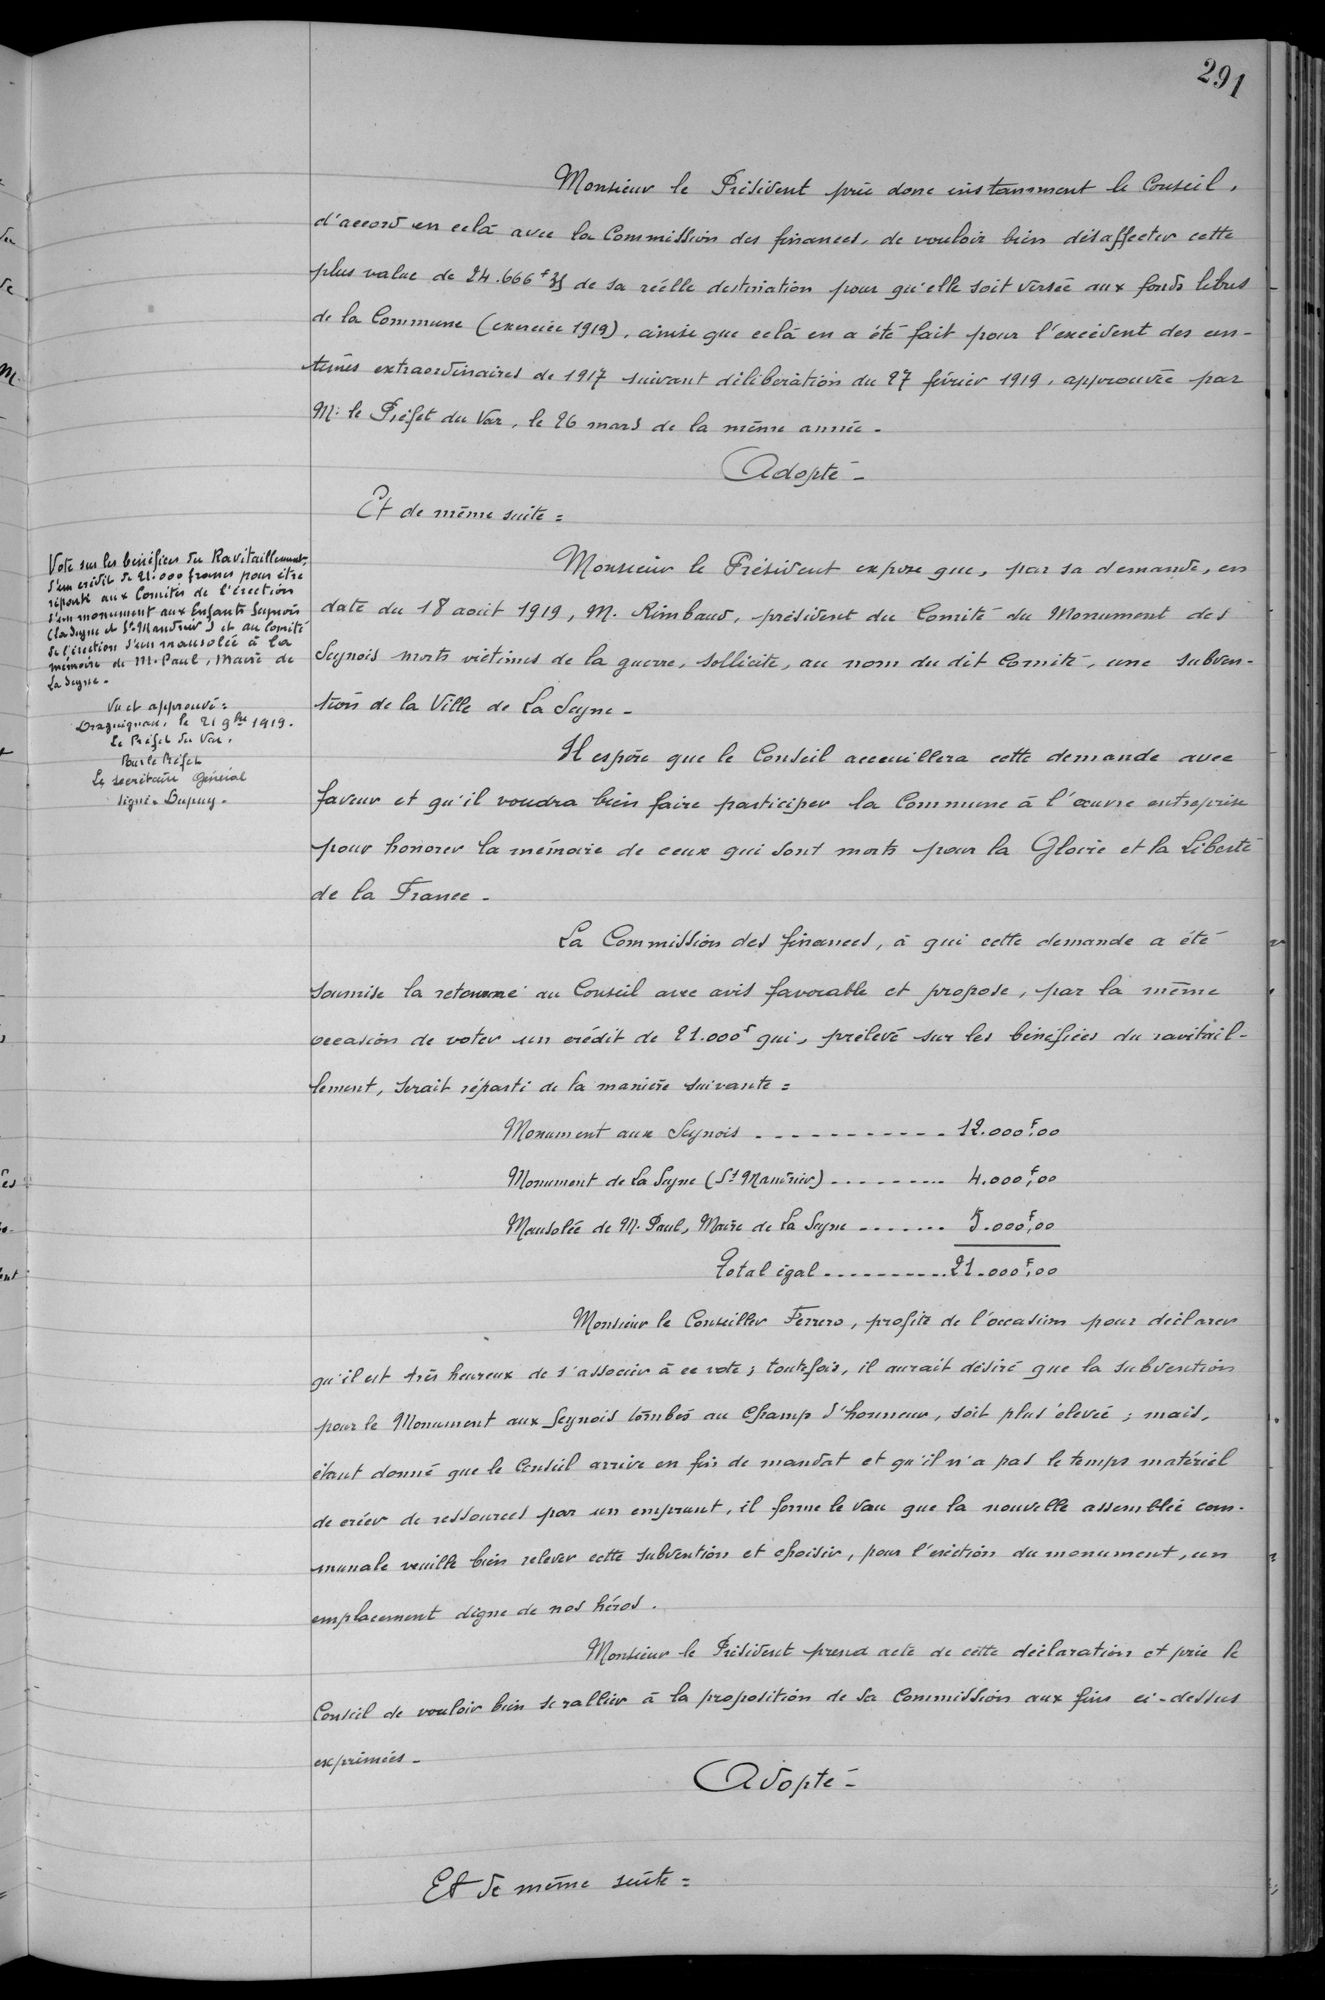 291
Monsieur le Président prie donc instamment le Conseil,
d'accord en celà avec la Commission des finances, de vouloir bien désaffecter cette
plus value de 24.666 f 35 de sa réelle destination pour qu'elle soit versée aux fonds libres
de la Commune (exercice 1919), ainsi que celà en a été fait pour l'excédent des cen-
times extraordinaires de 1917 suivant délibération du 27 février 1919, approuvée par
M. le Préfet du Var, le 26 mars de la même année -
Adopté -
Et de même suite =
Vote sur les bénéfices du Ravitaillement,
d'un crédit de 21.000 francs pour être
réparti aux Comités de l'érection
d'un monument aux Enfants Seynois
(La Seyne et St Mandrier) et au Comité
de l'érection d'un mausolée à la
mémoire de M. Paul, Maire de
La Seyne -
Vu et approuvé =
Draguignan, le 21 9bre 1919.
Le Préfet du Var,
Pour le Préfet
Le Secrétaire Général
signé = Dupuy -
Monsieur le Président expose que, par sa demande, en
date du 18 août 1919, M. Rimbaud, président du Comité du Monument des
Seynois morts victimes de la guerre, sollicite, au nom du dit Comité, une subven-
tion de la Ville de La Seyne -
Il espère que le Conseil accueillera cette demande avec
faveur et qu'il voudra bien faire participer la Commune à l'œuvre entreprise
pour honorer la mémoire de ceux qui sont morts pour la Gloire et la Liberté
de la France -
La Commission des finances, à qui cette demande a été
soumise la retourne au Conseil avec avis favorable et propose, par la même
occasion de voter un crédit de 21.000f qui, prélevé sur les bénéfices du ravitail-
lement, serait réparti de la manière suivante =
Monument aux Seynois ------------ 12.000f,00
Monument de La Seyne (St Mandrier) --------- 4.000f,00
Mausolée de M. Paul, Maire de La Seyne ------- 5.000f,00
Total égal ----------- 21.000f,00
Monsieur le Conseiller Ferrero, profite de l'occasion pour déclarer
qu'il est très heureux de s'associer à ce vote ; toutefois, il aurait désiré que la subvention
pour le Monument aux Seynois tombés au Champ d'honneur, soit plus élevée ; mais,
étant donné que le Conseil arrive en fin de mandat et qu'il n'a pas le temps matériel
de créer de ressources par un emprunt, il forme le vœu que la nouvelle assemblée com-
munale veuille bien relever cette subvention et choisir, pour l'érection du monument, un
emplacement digne de nos héros.
Monsieur le Président prend acte de cette déclaration et prie le
Conseil de vouloir bien se rallier à la proposition de sa Commission aux fins ci-dessus
exprimées -
Adopté -
Et de même suite =